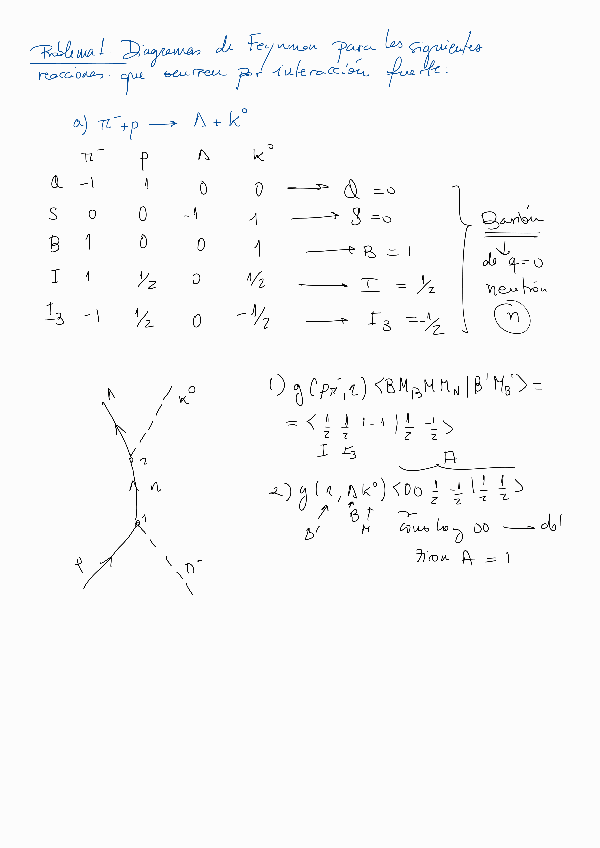 Problema 1 Diagramas de Feynman para las siguientes
reacciones que ocurren por interacción fuerte.
a) π⁻+p → Λ + K⁰
π⁻ p Λ K⁰
Q -1 1 0 0 → Q = 0
S 0 0 -1 1 → S = 0
B 1 0 0 1 → B = 1
I 1 1/2 0 1/2 → I = 1/2
I₃ -1 1/2 0 -1/2 → I₃ = -1/2
Barión
de q=0
neutrón
n
Λ K⁰
2
n
1
P π⁻
1) g(pπ⁻, n) <B M_B M M_N | B' M_B'> =
= <1/2 1/2 1 -1 | 1/2 -1/2>
I I₃
A
2) g(n, ΛK⁰) <00 1/2 -1/2 | 1/2 1/2>
B' B M
Como hay 00 → del
A = 1